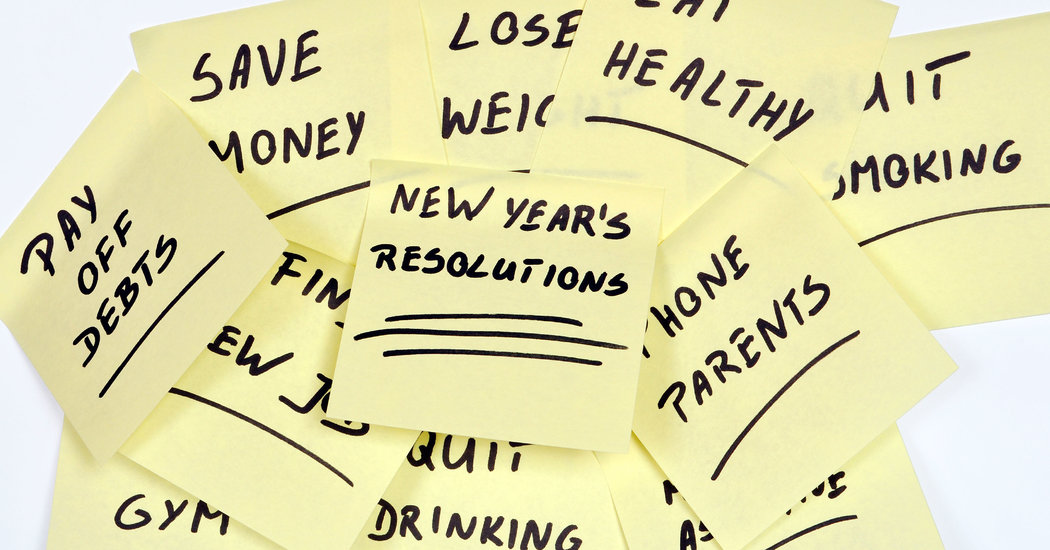 SAVE
MONEY
LOSE
HEALTHY
SMOKING
PAY
OFF
DEBTS
NEW YEAR'S
RESOLUTIONS
PHONE
PARENTS
QUIT
DRINKING
GYM